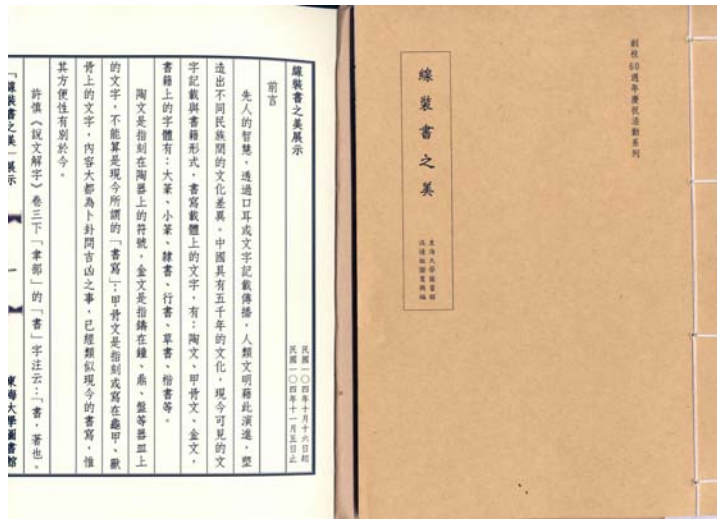 創校60週年慶祝活動系列
線裝書之美
東海大學圖書館
線裝書之美展示
民國一〇四年十月十六日起
民國一〇四年十一月五日止
前言
先人的智慧，透過口耳或文字記載傳播，人類文明藉此演進，塑
造出不同民族間的文化差異。中國具有五千年的文化，現今可見的文
字記載與書籍形式，書寫載體上的文字，有：陶文、甲骨文、金文，
書籍上的字體有：大篆、小篆、隸書、行書、草書、楷書等。
陶文是指刻在陶器上的符號，金文是指鑄在鐘、鼎、盤等器皿上
的文字，不能算是現今所謂的「書寫」；甲骨文是指刻或寫在龜甲、獸
骨上的文字，內容大都為卜卦問吉凶之事，已經類似現今的書寫，惟
其方便性有別於今。
許慎《說文解字》卷三下「聿部」的「書」字注云：「書，著也。
「線裝書之美」展示 【 一 】 東海大學圖書館